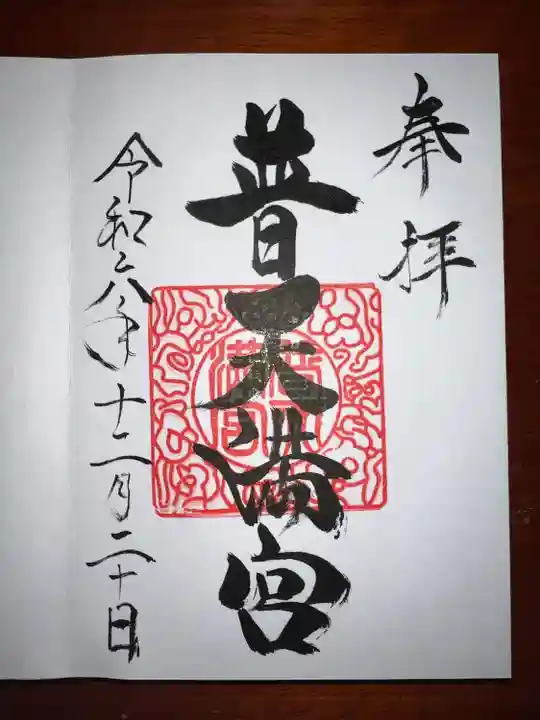 奉拝
昔天満宮
令和六年十二月二十日